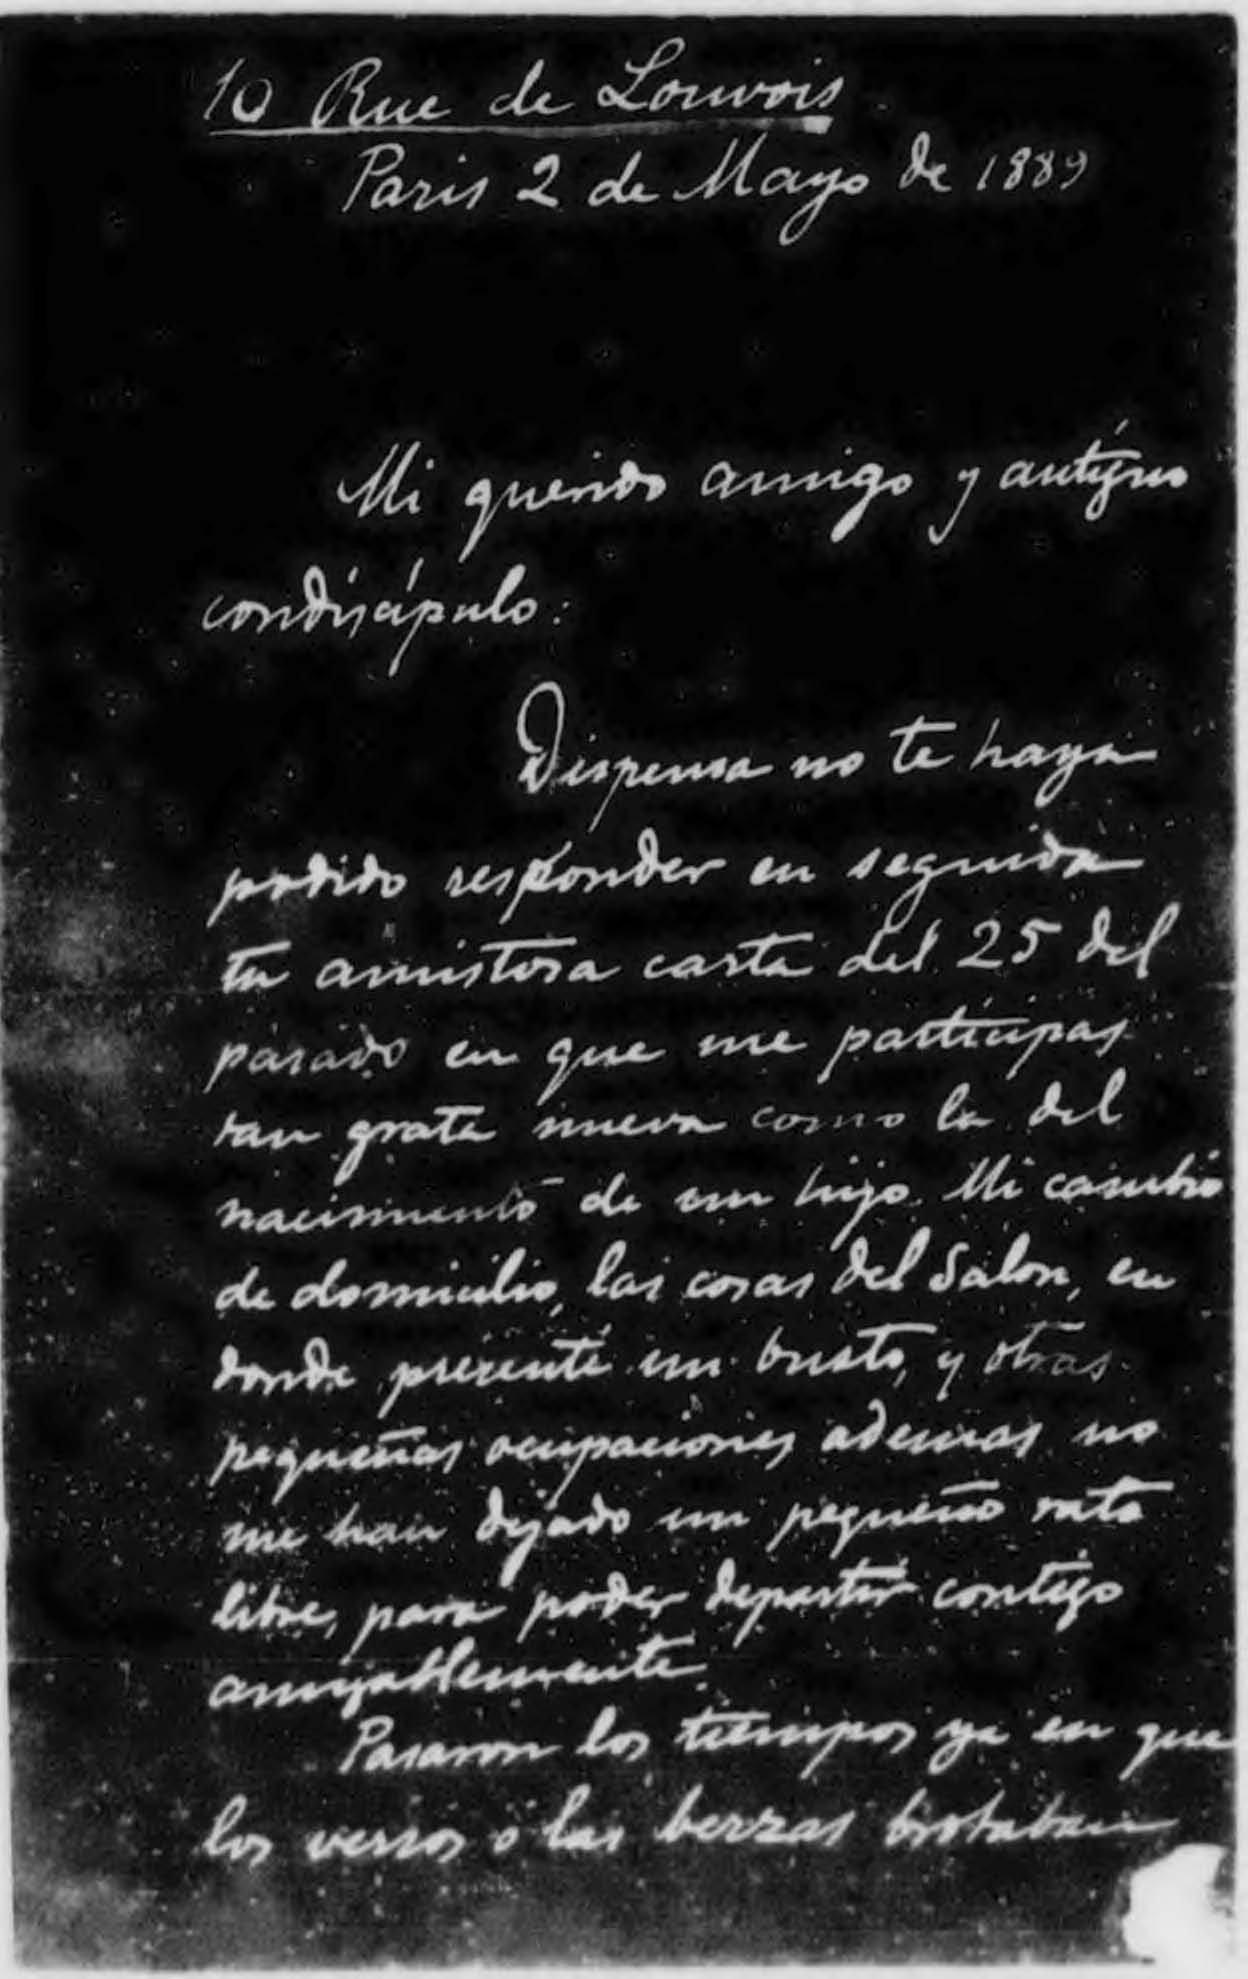 10 Rue de Louvois
Paris 2 de Mayo de 1889
Mi querido amigo y antíguo
condiscípulo:
Dispensa no te haya
podido responder en seguida
tu amistosa carta del 25 del
pasado en que me participas
tan grata nueva como la del
nacimiento de un hijo. Mi cambio
de domicilio, las cosas del Salon, en
donde presenté un busto, y otras
pequeñas ocupaciones ademas no
me han dejado un pequeño rato
libre, para poder departir contigo
amigablemente.
Pasaron los tiempos ya en que
los versos o las berzas brotaban